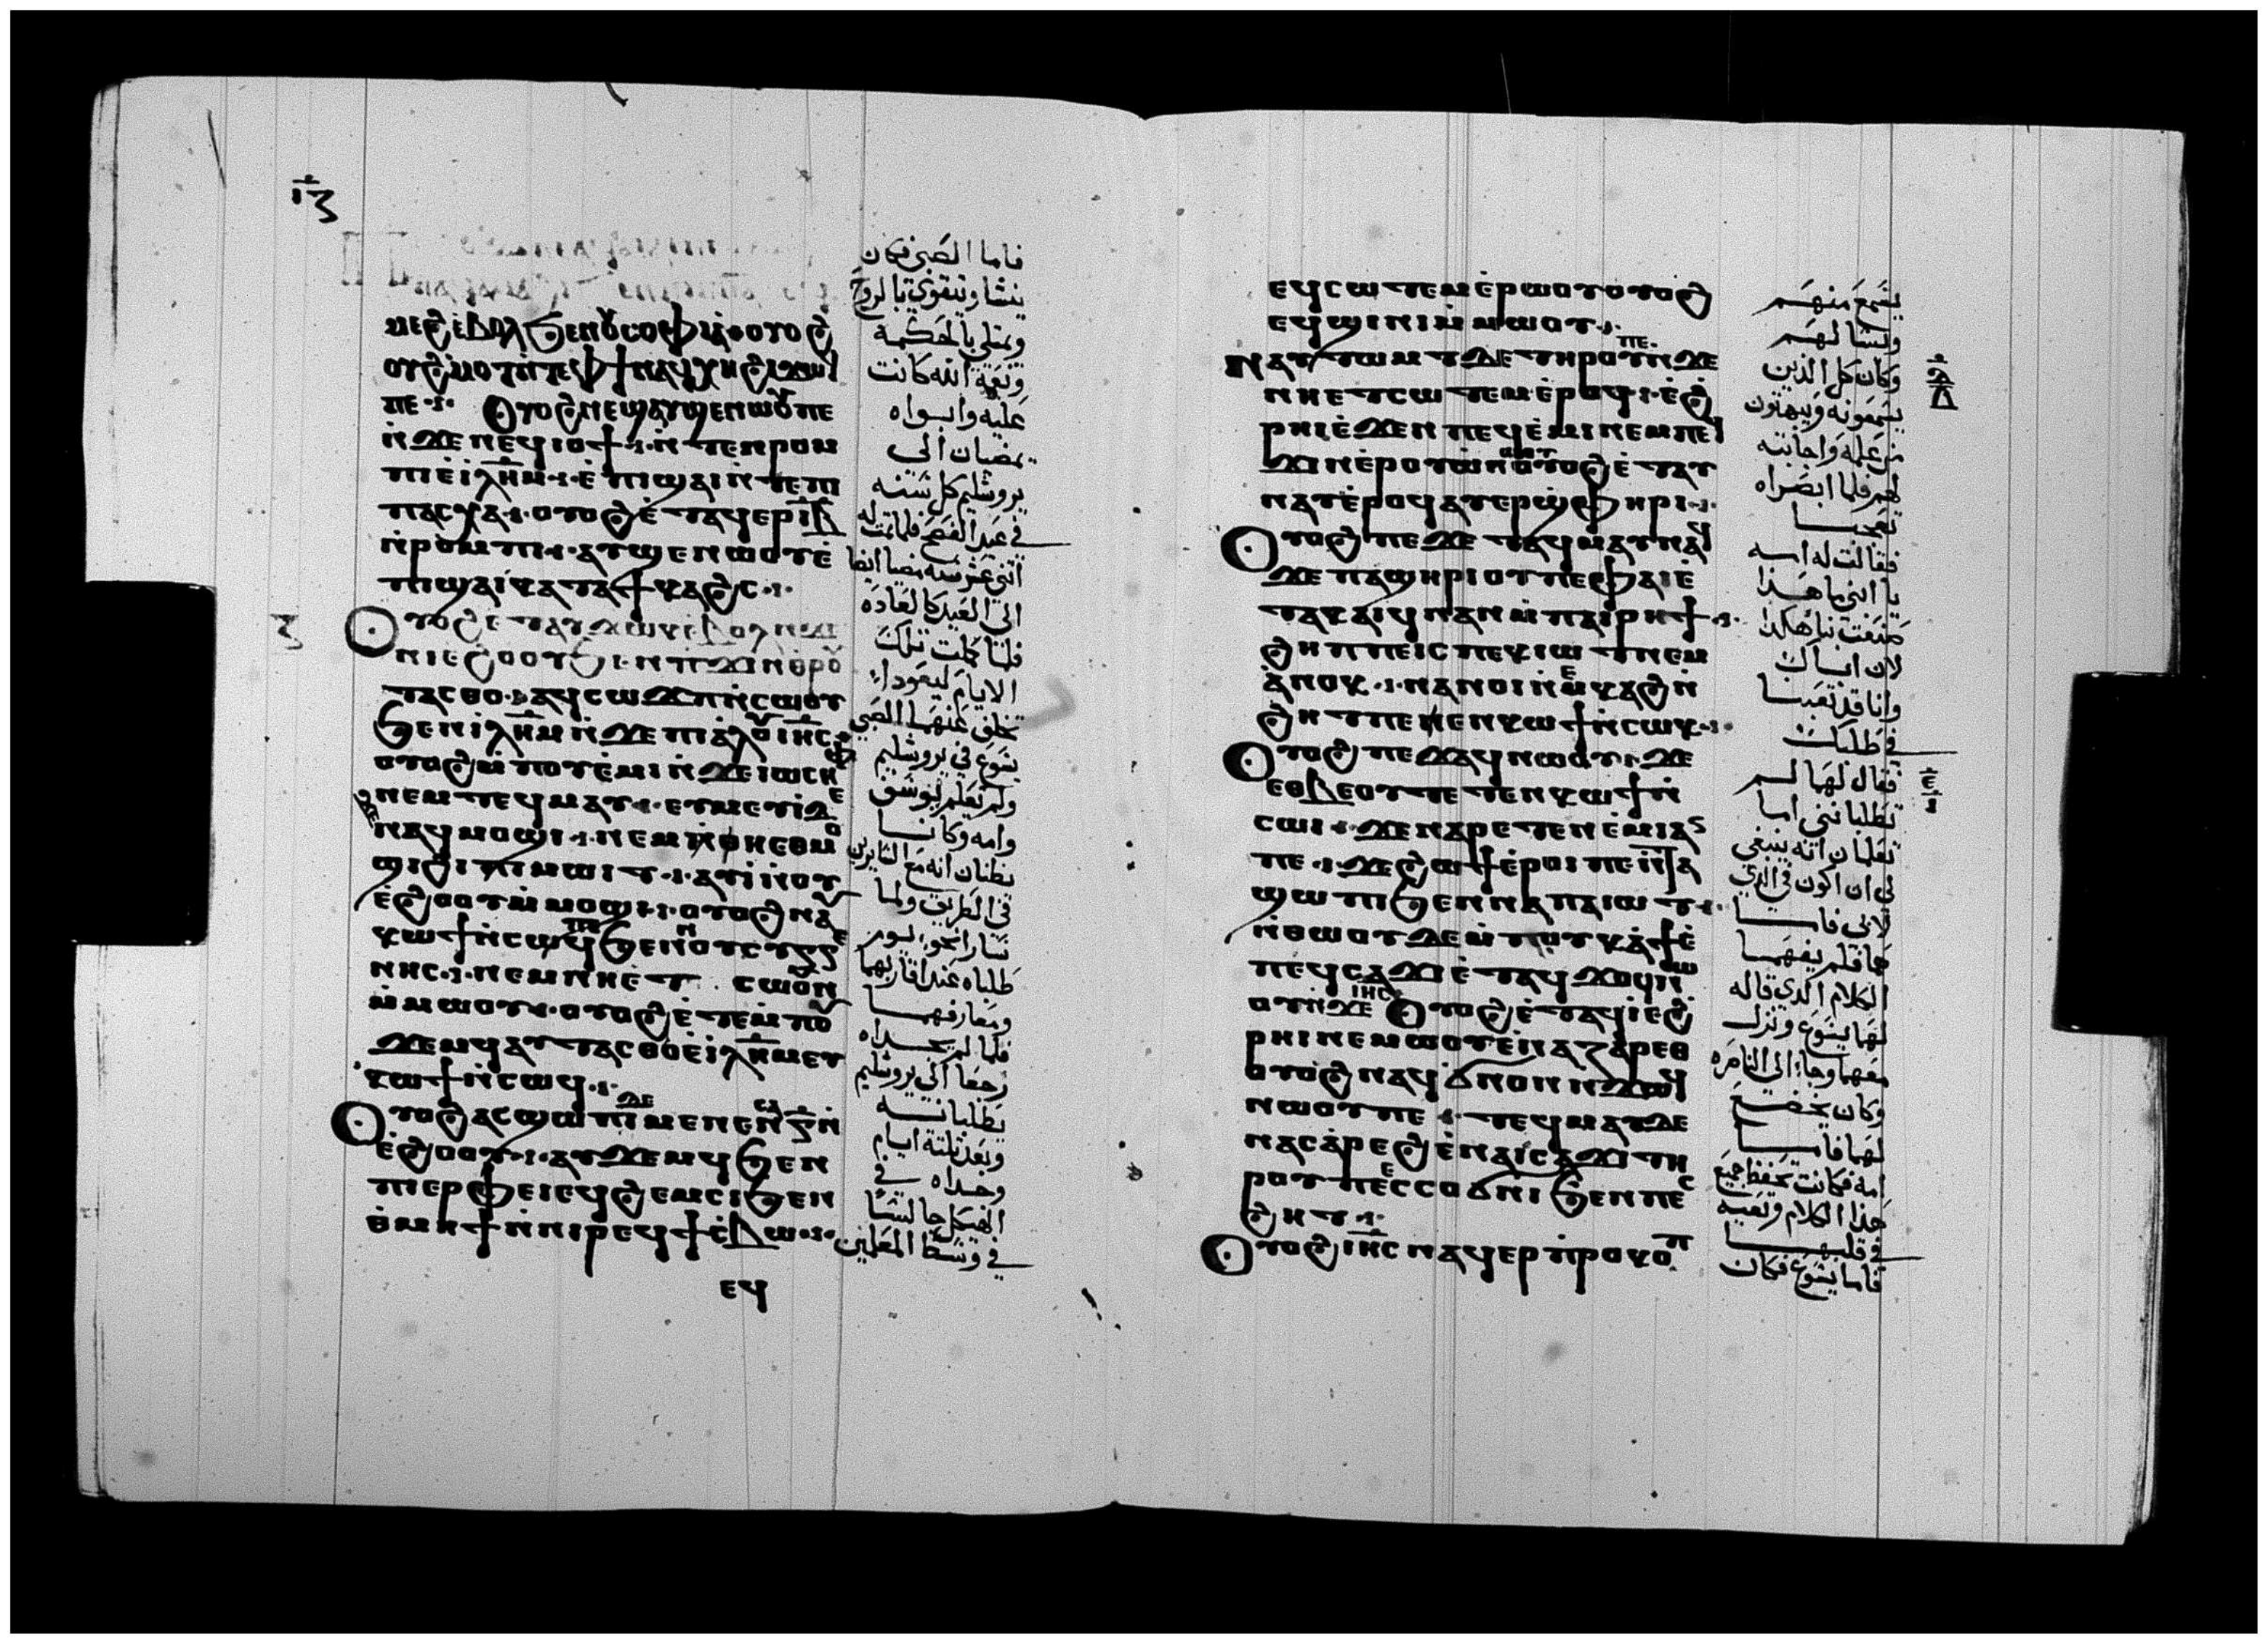 ⲓ̅ⲍ
ⲙⲉϩ ⲉ̇ⲃⲟⲗϧⲉⲛⲟⲩⲥⲟⲫⲓⲁ̇ⲟⲩⲟϩ
ⲟⲩϩ̇ⲙⲟⲧⲛ̇ⲧⲉⲫϯⲛⲁϥⲭⲏϩⲓϫⲱϥ
ⲡⲉ·ⲟⲩⲟϩⲛⲉϣⲁⲩϣⲉⲛⲱⲟⲩⲡⲉ
ⲛ̇ϫⲉⲛⲉϥⲓⲟϯ·ⲛ̇ⲧⲉⲛⲣⲟⲙ
ⲡⲓⲉ̇ⲓ̇ⲗⲏ̅ⲙ·ⲉ̇ⲡⲓϣⲁⲓⲛ̇ⲧⲉⲡⲓ
ⲡⲁⲥⲭⲁ·ⲟⲩⲟϩⲉ̇ⲧⲁϥⲉⲣⲓ̅ⲃ̅
ⲛ̇ⲣⲟⲙⲡⲓ·ⲁⲩϣⲉⲛⲱⲟⲩⲉ̇
ⲡⲓϣⲁⲓⲕⲁⲧⲁϯⲕⲁϩⲥ·
ⲟⲩⲟϩⲉⲧⲁⲩϫⲱⲕⲉ̇ⲃⲟⲗⲛ̇ϫⲉ
ⲛⲓⲉϩⲟⲟⲩϧⲉⲛⲡϫⲓⲛⲑⲣⲟⲩ
ⲧⲁⲥⲑⲟ·ⲁϥⲥⲱϫⲡⲛ̇ⲥⲱⲟⲩ
ϧⲉⲛⲓ̇ⲗⲏ̅ⲙⲛ̇ϫⲉⲡⲓⲁ̇ⲗⲟⲩⲓⲏⲥ
ⲟⲩⲟϩⲙ̇ⲡⲟⲩⲉ̇ⲙⲓⲛ̇ϫⲉⲓⲱⲥⲏⲫ
ⲛⲉⲙⲧⲉϥⲙⲁⲩ·ⲉⲩⲙⲉⲩⲓ̇ϫⲉ
ⲛⲁϥⲙⲟϣⲓ·ⲛⲉⲙⲛⲏⲉⲑⲙⲟ
ϣⲓϩⲓⲡⲓⲙⲱⲓⲧ·ⲁⲩⲓ̇ⲛ̇ⲟⲩ
ⲉ̇ϩⲟⲟⲩⲙ̇ⲙⲟϣⲓ·ⲟⲩⲟϩⲛⲁⲩ
ⲕⲱϯⲛ̇ⲥⲱϥⲡⲉϧⲉⲛⲛⲟⲩⲥⲩⲅⲅⲉ
ⲛⲏⲥ·ⲛⲉⲙⲛⲏⲉ̇ⲧ ⲥⲱⲟⲩⲛ
ⲙ̇ⲙⲱⲟⲩ·ⲟⲩⲟϩⲉ̇ⲧⲉⲙ̇ⲡⲟⲩ
ϫⲉⲙϥⲁⲩⲧⲁⲥⲑⲟⲉ̇ⲓ̇ⲗⲏ̅ⲙⲉⲩ
ⲕⲱϯⲛ̇ⲥⲱϥ·
ⲟⲩⲟϩⲁⲥϣⲱⲡⲓⲇⲉⲙⲉⲛⲉⲛⲥⲁⲅ̅ⲛ̇
ⲉ̇ϩⲟⲟⲩ·ⲁⲩϫⲉⲙϥϧⲉⲛ
ⲡⲓⲉⲣⲫⲉⲓⲉϥϩⲉⲙⲥⲓϧⲉⲛ
ⲑ̇ⲙⲏϯⲛ̇ⲛⲓⲣⲉϥϯⲥ̇ⲃⲱ·
ⲉϥ
فاما الصبي فكان
ينشا ويتقوي بالروح
ويمتلي بالحكمه
ونعمة الله كانت
عليه وابواه
يمضيان الي
يروشليم كل سنه
في عيد الفصح فلما تمت له
اثني عشر سنه مضيا ايضا
الي العيد كالعاده
فلما كملت تلك
الايام ليعودا
تخلف عنهما الصبي
يسوع في يروشليم
ولم يعلم يوسف
وامه وكانا
يظنان انه مع السايرين
في الطريق ولما
سارا نحو يوم
طلباه عند اقاربهما
ومعارفهما
فلما لم يجداه
رجعا الي يروشليم
يطلبانه
وبعد ثلثة ايام
وجداه في
الهيكل جالسا
في وسط المعلمين
ⲉϥⲥⲱⲧⲉⲙⲉ̇ⲣⲱⲟⲩⲟⲩⲟϩ
ⲉϥϣⲓⲛⲓⲙ̇ⲙⲱⲟⲩ·
ⲛⲁⲩⲧⲱⲙⲧⲇⲉⲧⲏⲣⲟⲩⲡⲉⲛ̇ϫⲉ
ⲛⲏⲉⲧⲥⲱⲧⲉⲙⲉ̇ⲣⲟϥ·ⲉ̇ϩ
ⲣⲏⲓⲉ̇ϫⲉⲛⲡⲉϥⲉ̇ⲙⲓⲛⲉⲙⲡⲉϥ
ϫⲓⲛⲉ̇ⲣⲟⲩⲱ̇ⲛⲱⲟⲩⲟⲩⲟϩⲉ̇ⲧⲁⲩ
ⲛⲁⲩⲉ̇ⲣⲟϥⲁⲩⲉⲣϣ̇ⲫⲏⲣⲓ·
ⲟⲩⲟϩⲡⲉϫⲉⲧⲉϥⲙⲁⲩⲛⲁϥ
ϫⲉⲡⲁϣⲏⲣⲓⲟⲩⲡⲉⲫⲁⲓⲉ̇
ⲧⲁⲕⲁⲓϥⲛⲁⲛⲙ̇ⲡⲁⲓⲣⲏϯ·
ϩⲏⲡⲡⲉⲓⲥⲡⲉⲕⲓⲱⲧⲛⲉⲙ
ⲁ̇ⲛⲟⲕ·ⲛⲁⲛⲟⲓⲛ̇ⲉⲙⲕⲁϩⲛ̇
ϩⲏⲧⲡⲉⲛⲉⲛⲕⲱϯⲛ̇ⲥⲱⲕ·
ⲟⲩⲟϩⲡⲉϫⲁϥⲛⲱⲟⲩ·ϫⲉ
ⲉⲑⲃⲉⲟⲩⲧⲉⲧⲉⲛⲕⲱϯⲛ̇
ⲥⲱⲓ·ϫⲉⲛⲁⲣⲉⲧⲉⲛⲉ̇ⲙⲓⲁⲛ
ⲡⲉ·ϫⲉϩⲱϯⲉ̇ⲣⲟⲓⲡⲉⲛ̇ⲧⲁ
ϣⲱⲡⲓϧⲉⲛⲛⲁⲡⲁⲓⲱⲧ·
ⲛ̇ⲑⲱⲟⲩⲇⲉⲙ̇ⲡⲟⲩⲕⲁϯⲉ̇
ⲡⲉϥⲥⲁϫⲓⲉ̇ⲧⲁϥϫⲟϥⲛⲱ
ⲟⲩⲛ̇ϫⲉⲓⲏⲥ ⲟⲩⲟϩⲉ̇ⲧⲁϥⲓ̇ⲉϩ
ⲣⲏⲓⲛⲉⲙⲱⲟⲩⲉ̇ⲛⲁⲍⲁⲣⲉⲑ
ⲟⲩⲟϩⲛⲁϥϭⲛⲟⲛⲛ̇ϫⲱϥ
ⲛⲱⲟⲩⲡⲉ·ⲧⲉϥⲙⲁⲩⲇⲉ
ⲛⲁⲥⲁ̇ⲣⲉϩⲉ̇ⲛⲁⲓⲥⲁϫⲓⲧⲏ
ⲣⲟⲩⲡⲉⲉⲥⲥⲟϭⲛⲓϧⲉⲛⲡⲉⲥ
ϩⲏⲧ·
ⲟⲩⲟϩⲓⲏⲥⲛⲁϥⲉⲣⲡ̇ⲣⲟⲕⲟⲡ
يسمع منهم
ويسالهم
وكان كل الذين
يسمعونه ويبهتون
من علمه واجابته
لهم فلما ابصراه
تعجبا
فقالت له امه
يا ابني ما هذا
صنعت بنا هكذا
لان اباك
وانا قد تعبنا
في طلبك
فقال لهما لم
تطلبانني اما
تعلمان انه ينبغي
لي ان اكون في الذي
لابي فاما
هما فلم يفهما
الكلام الذي قاله
لهما يسوع ونزل
معهما وجا الي الناصره
وكان يخضع
لهما فاما
امه فكانت تحفظ جميع
هذا الكلام وتعيه
في قلبها
فاما يسوع فكان